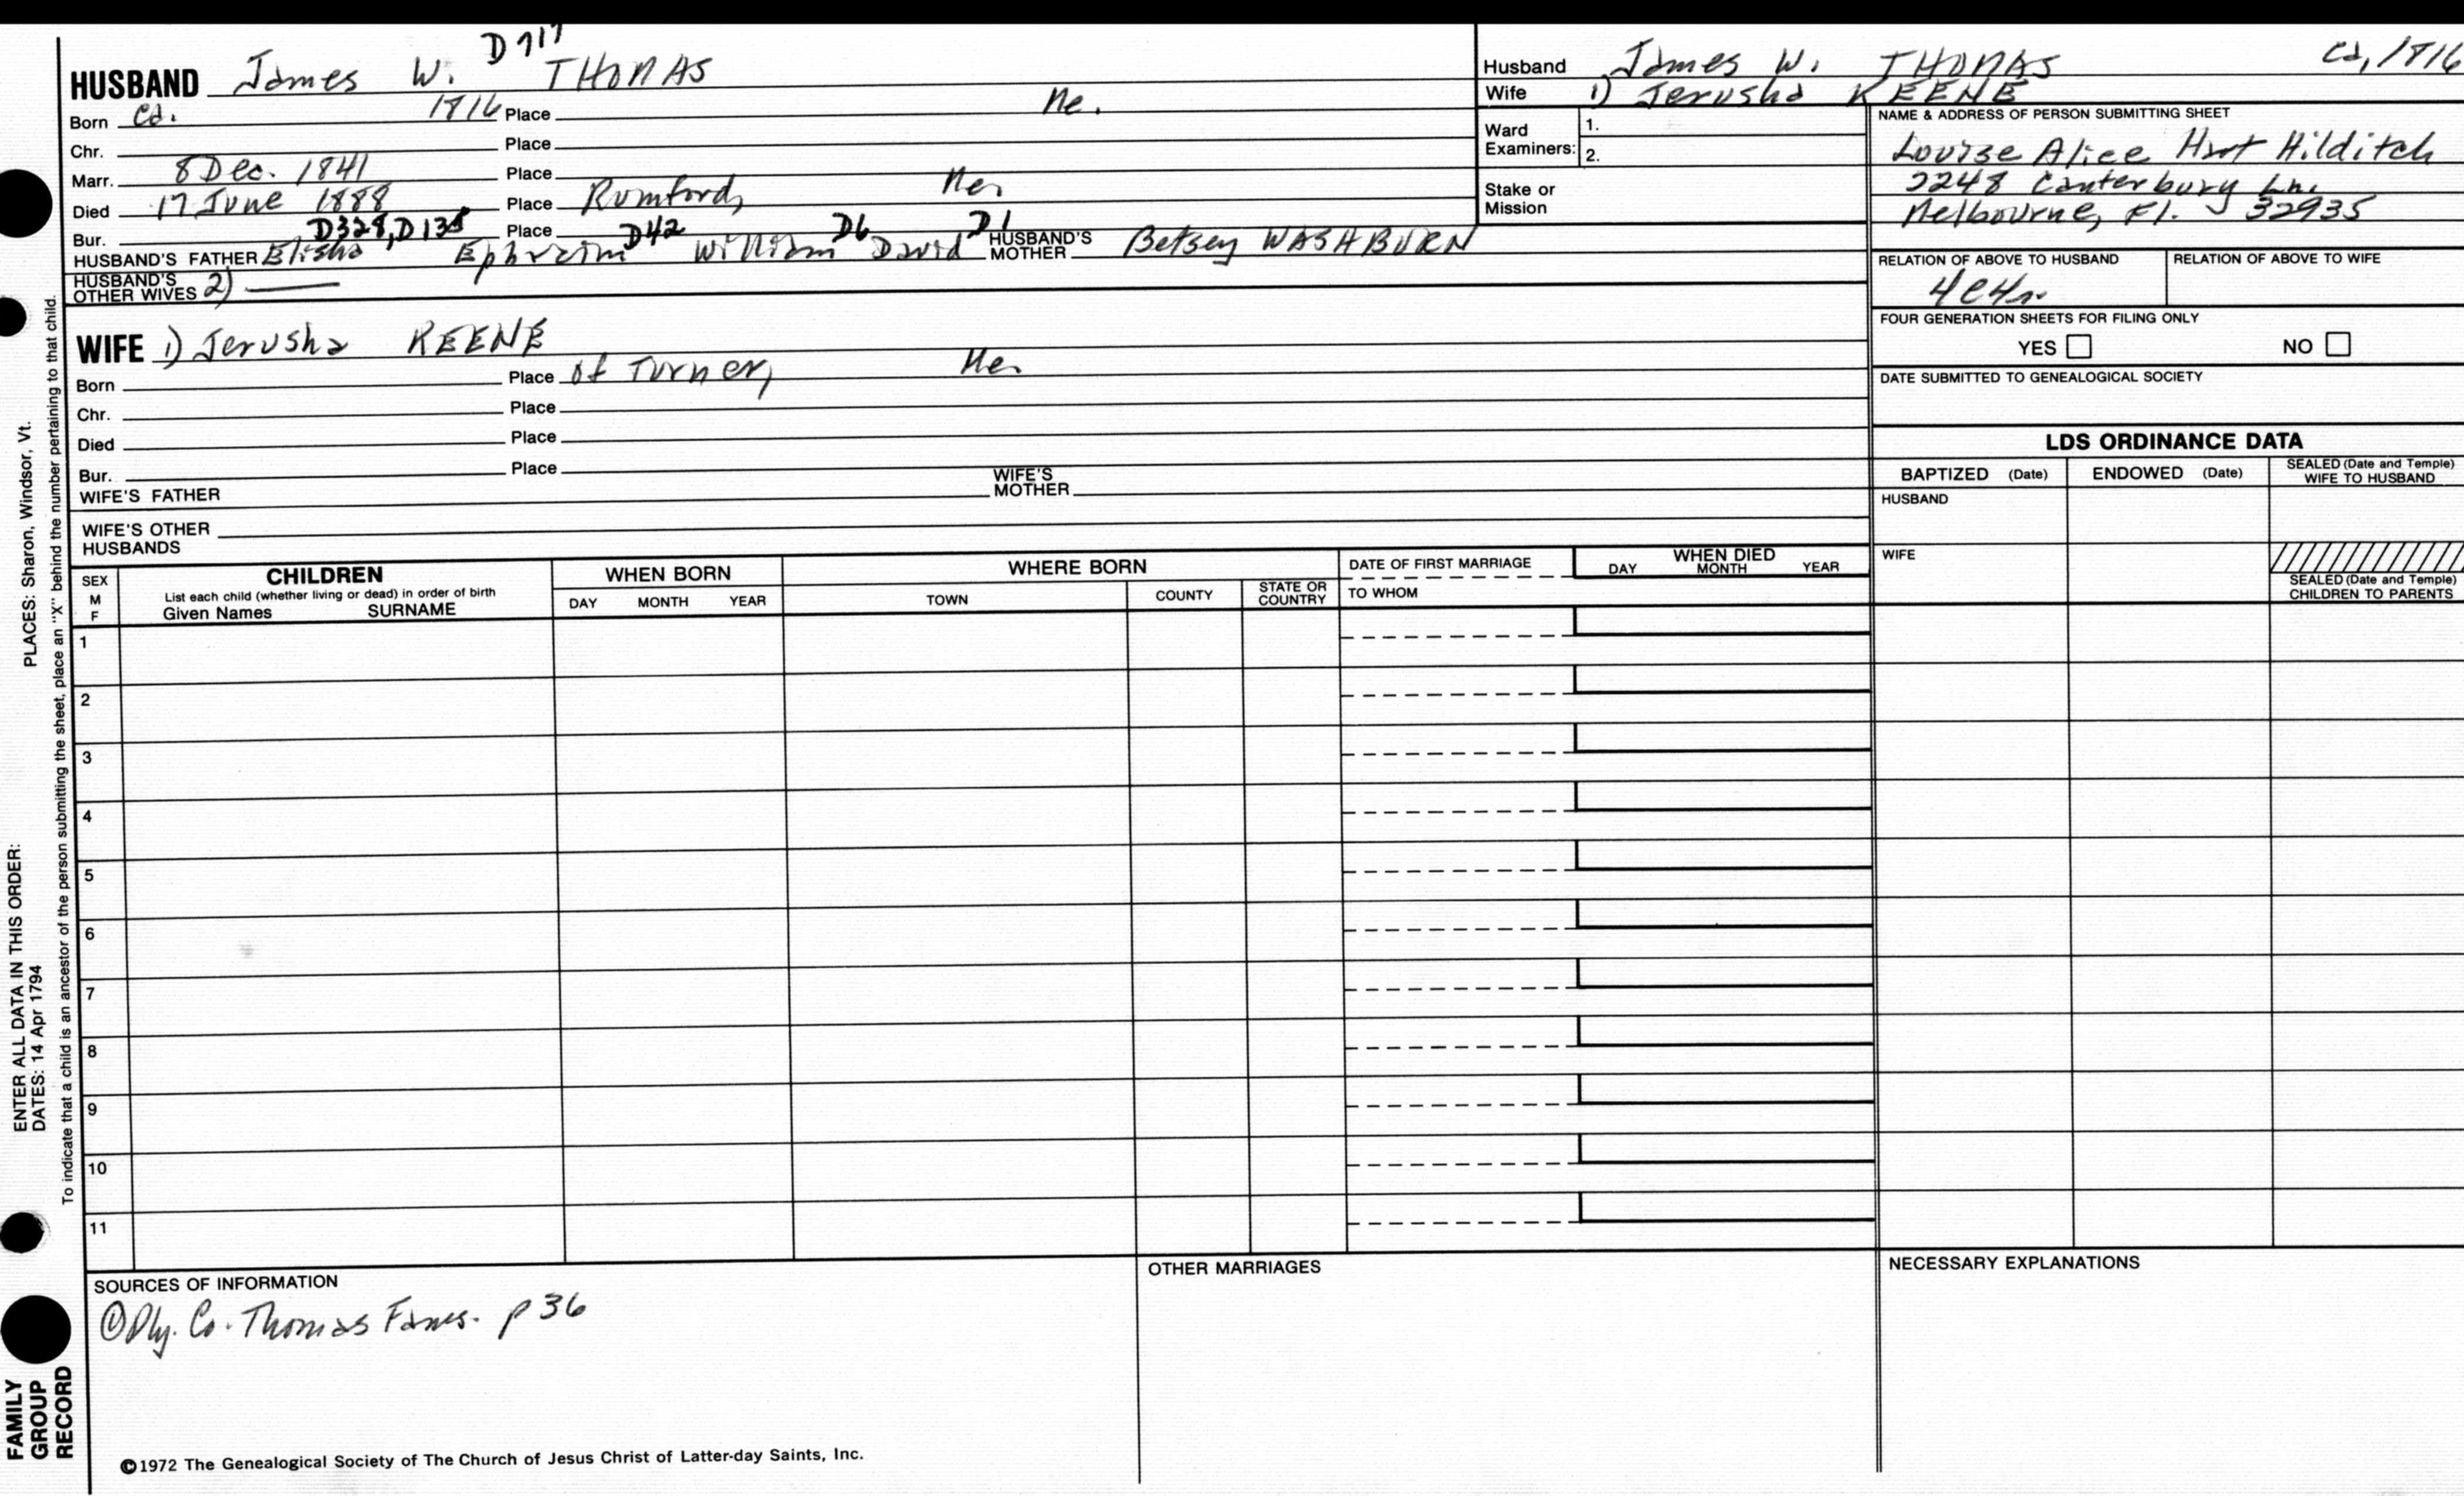 D717
HUSBAND James W. THOMAS
Born Ca. 1816 Place Me.
Chr. Place
Marr. 8 Dec. 1841 Place
Died 17 June 1888 Place Rumford, Me.
Bur. Place
D328, D138 D42 D6 D1
HUSBAND'S FATHER Elisha Ephraim William David HUSBAND'S MOTHER Betsey WASHBURN
HUSBAND'S OTHER WIVES 2) ——
WIFE 1) Jerusha KEENE
Born Place of Turner, Me.
Chr. Place
Died Place
Bur. Place
WIFE'S FATHER WIFE'S MOTHER
WIFE'S OTHER HUSBANDS
Husband James W. THOMAS Ca, 1816
Wife 1) Jerusha KEENE
Ward Examiners: 1.
2.
Stake or Mission
NAME & ADDRESS OF PERSON SUBMITTING SHEET
Louise Alice Hart Hilditch
2248 Canterbury Ln.
Melbourne, Fl. 32935
RELATION OF ABOVE TO HUSBAND RELATION OF ABOVE TO WIFE
4c4r.
FOUR GENERATION SHEETS FOR FILING ONLY
YES NO
DATE SUBMITTED TO GENEALOGICAL SOCIETY
LDS ORDINANCE DATA
BAPTIZED (Date) ENDOWED (Date) SEALED (Date and Temple) WIFE TO HUSBAND
HUSBAND
WIFE
SEALED (Date and Temple) CHILDREN TO PARENTS
SEX M F
CHILDREN
List each child (whether living or dead) in order of birth
Given Names SURNAME
WHEN BORN
DAY MONTH YEAR
WHERE BORN
TOWN COUNTY STATE OR COUNTRY
DATE OF FIRST MARRIAGE
TO WHOM
WHEN DIED
DAY MONTH YEAR
1
2
3
4
5
6
7
8
9
10
11
SOURCES OF INFORMATION
① Ply. Co. Thomas Fams. p 36
OTHER MARRIAGES
NECESSARY EXPLANATIONS
©1972 The Genealogical Society of The Church of Jesus Christ of Latter-day Saints, Inc.
FAMILY GROUP RECORD
ENTER ALL DATA IN THIS ORDER:
DATES: 14 Apr 1794
PLACES: Sharon, Windsor, Vt.
To indicate that a child is an ancestor of the person submitting the sheet, place an "X" behind the number pertaining to that child.